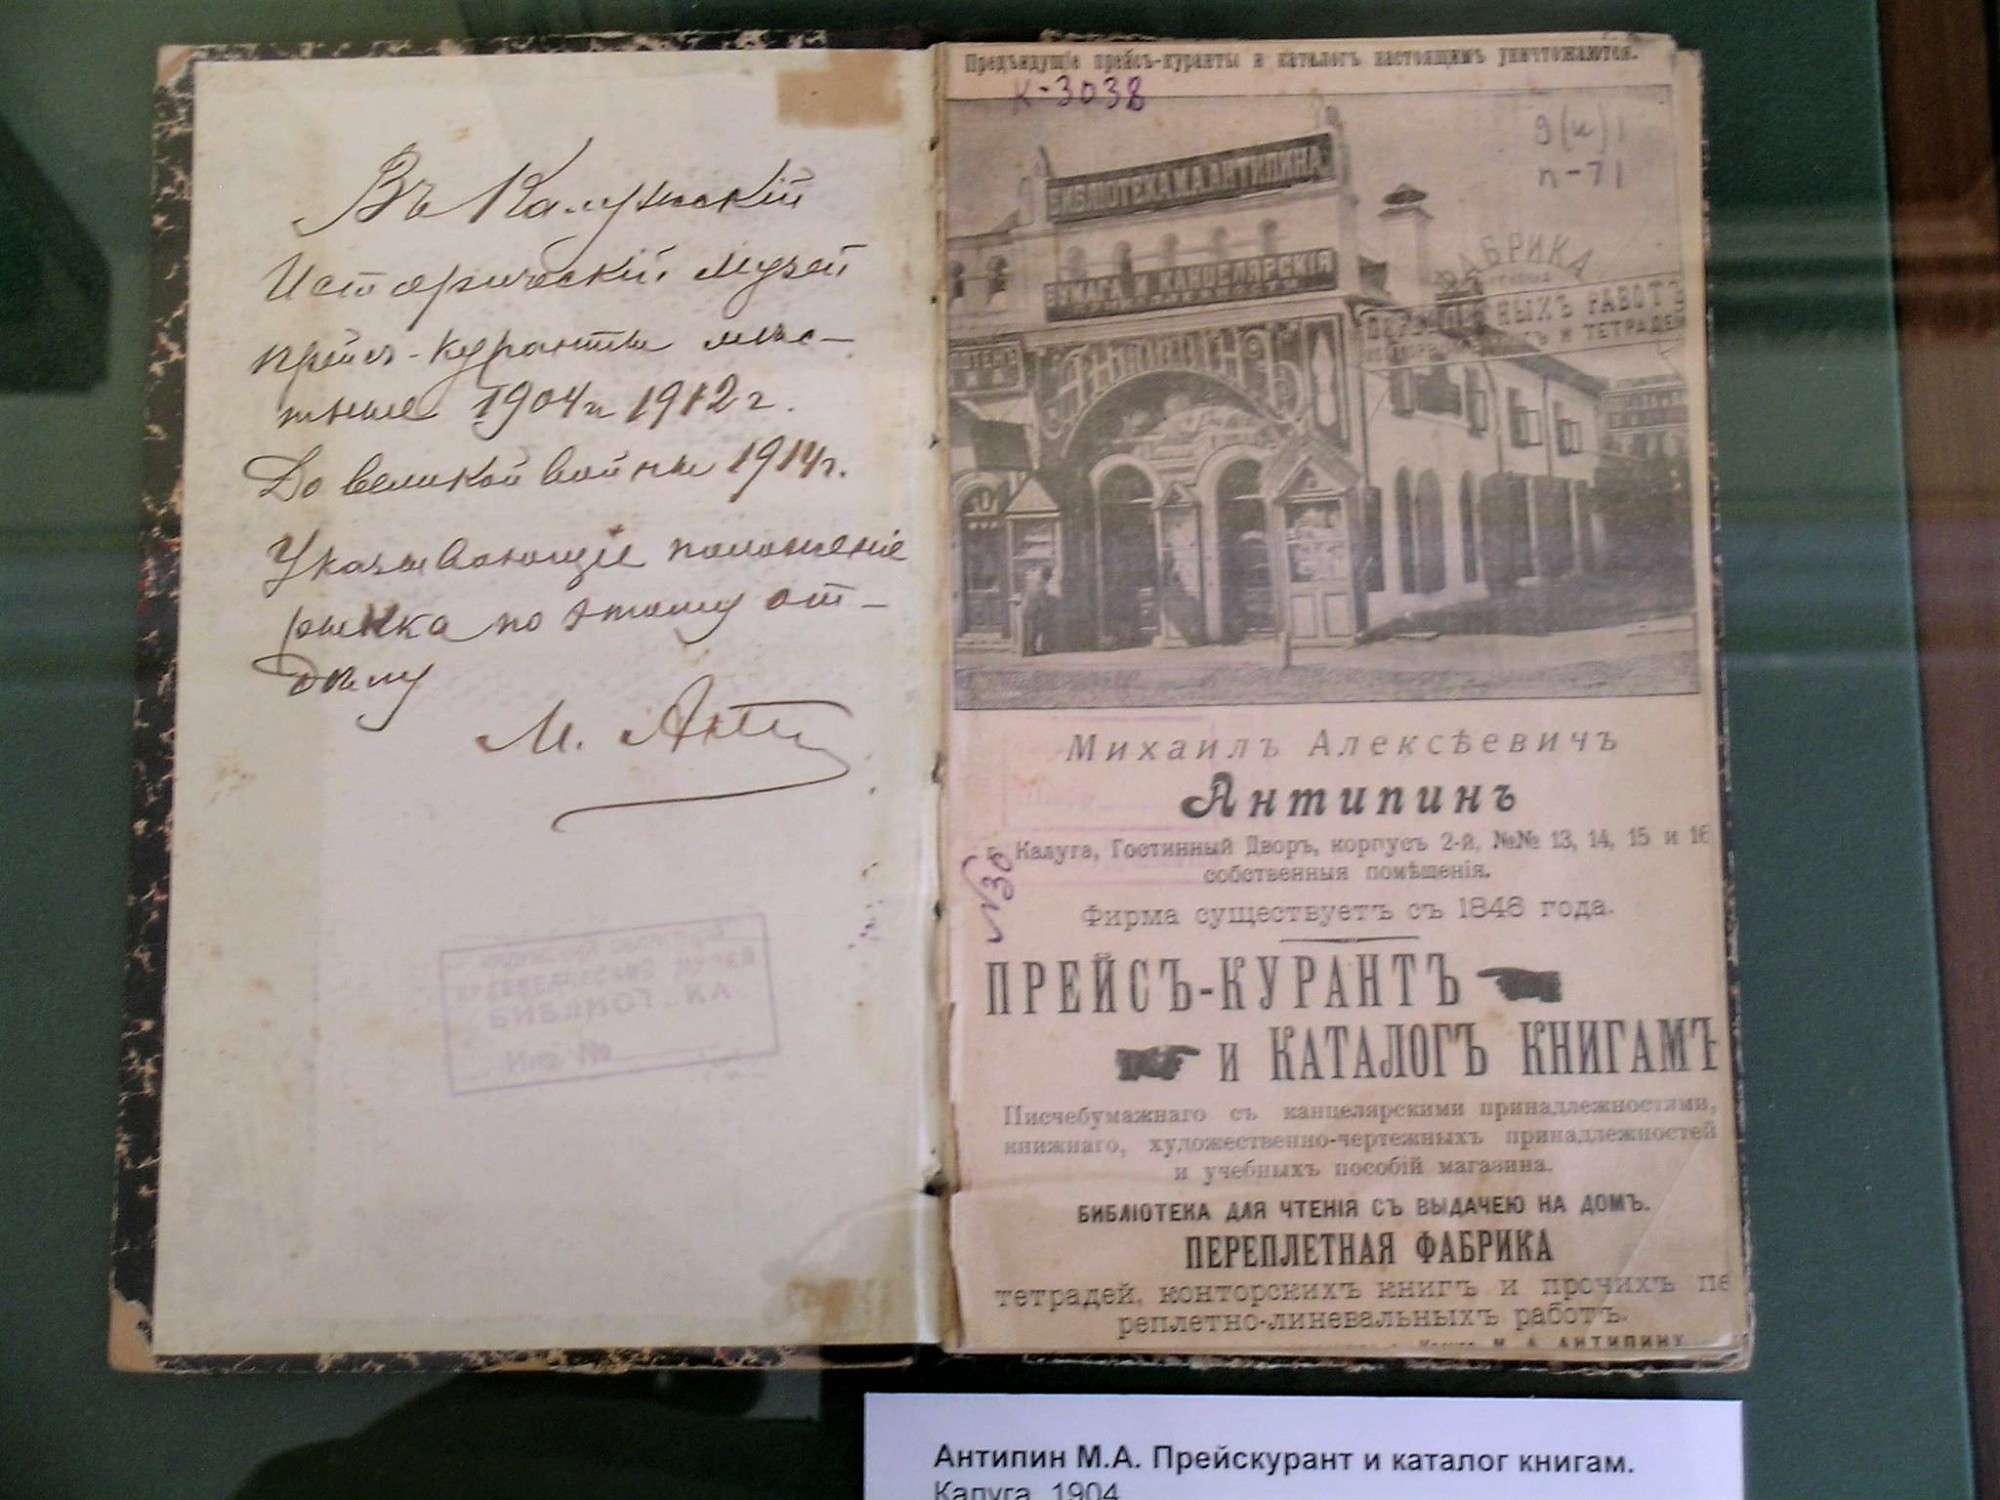 Въ Калужскій
Историческій музей
прейсъ-куранты мѣс-
тные 1904 и 1912 г.
До великой войны 1914 г.
Указывающіе положеніе
рынка по этому от-
дѣлу
М. Анти
БИБЛИОТЕКА
Инв. №
Предъидущіе прейсъ-куранты и каталогъ настоящимъ уничтожаются.
К-3038
9(к)1
п-71
БИБЛІОТЕКА М.А. АНТИПИНА
БУМАГА И КАНЦЕЛЯРСКІЯ
АНТИПИНЪ
ФАБРИКА
ПЕРЕПЛЕТНЫХЪ РАБОТЪ
И ТЕТРАДЕЙ
Михаилъ Алексѣевичъ
Антипинъ
г. Калуга, Гостинный Дворъ, корпусъ 2-й, №№ 13, 14, 15 и 16
собственныя помѣщенія.
Фирма существуетъ съ 1846 года.
ПРЕЙСЪ-КУРАНТЪ
и КАТАЛОГЪ КНИГАМЪ
Писчебумажнаго съ канцелярскими принадлежностями,
книжнаго, художественно-чертежныхъ принадлежностей
и учебныхъ пособій магазина.
БИБЛІОТЕКА ДЛЯ ЧТЕНІЯ СЪ ВЫДАЧЕЮ НА ДОМЪ.
ПЕРЕПЛЕТНАЯ ФАБРИКА
тетрадей, конторскихъ книгъ и прочихъ пе
реплетно-линевальныхъ работъ.
Калуга М. А. АНТИПИНУ
Антипин М.А. Прейскурант и каталог книгам.
Калуга, 1904